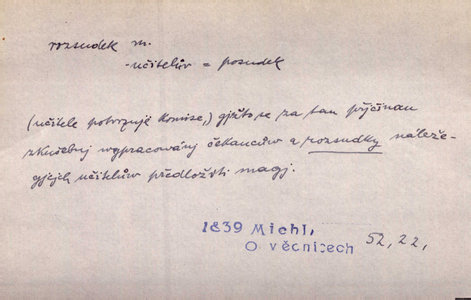 rozsudek m.
-učitelův = posudek
(učitele potvrzuje komise,) gjžto se za tau přjčinau
zkušebnj wypracowánj čekanců a rozsudky náleže-
gjcých učitelůw předložiti magj.
1839 Michl,
O věcnitech 52, 22,